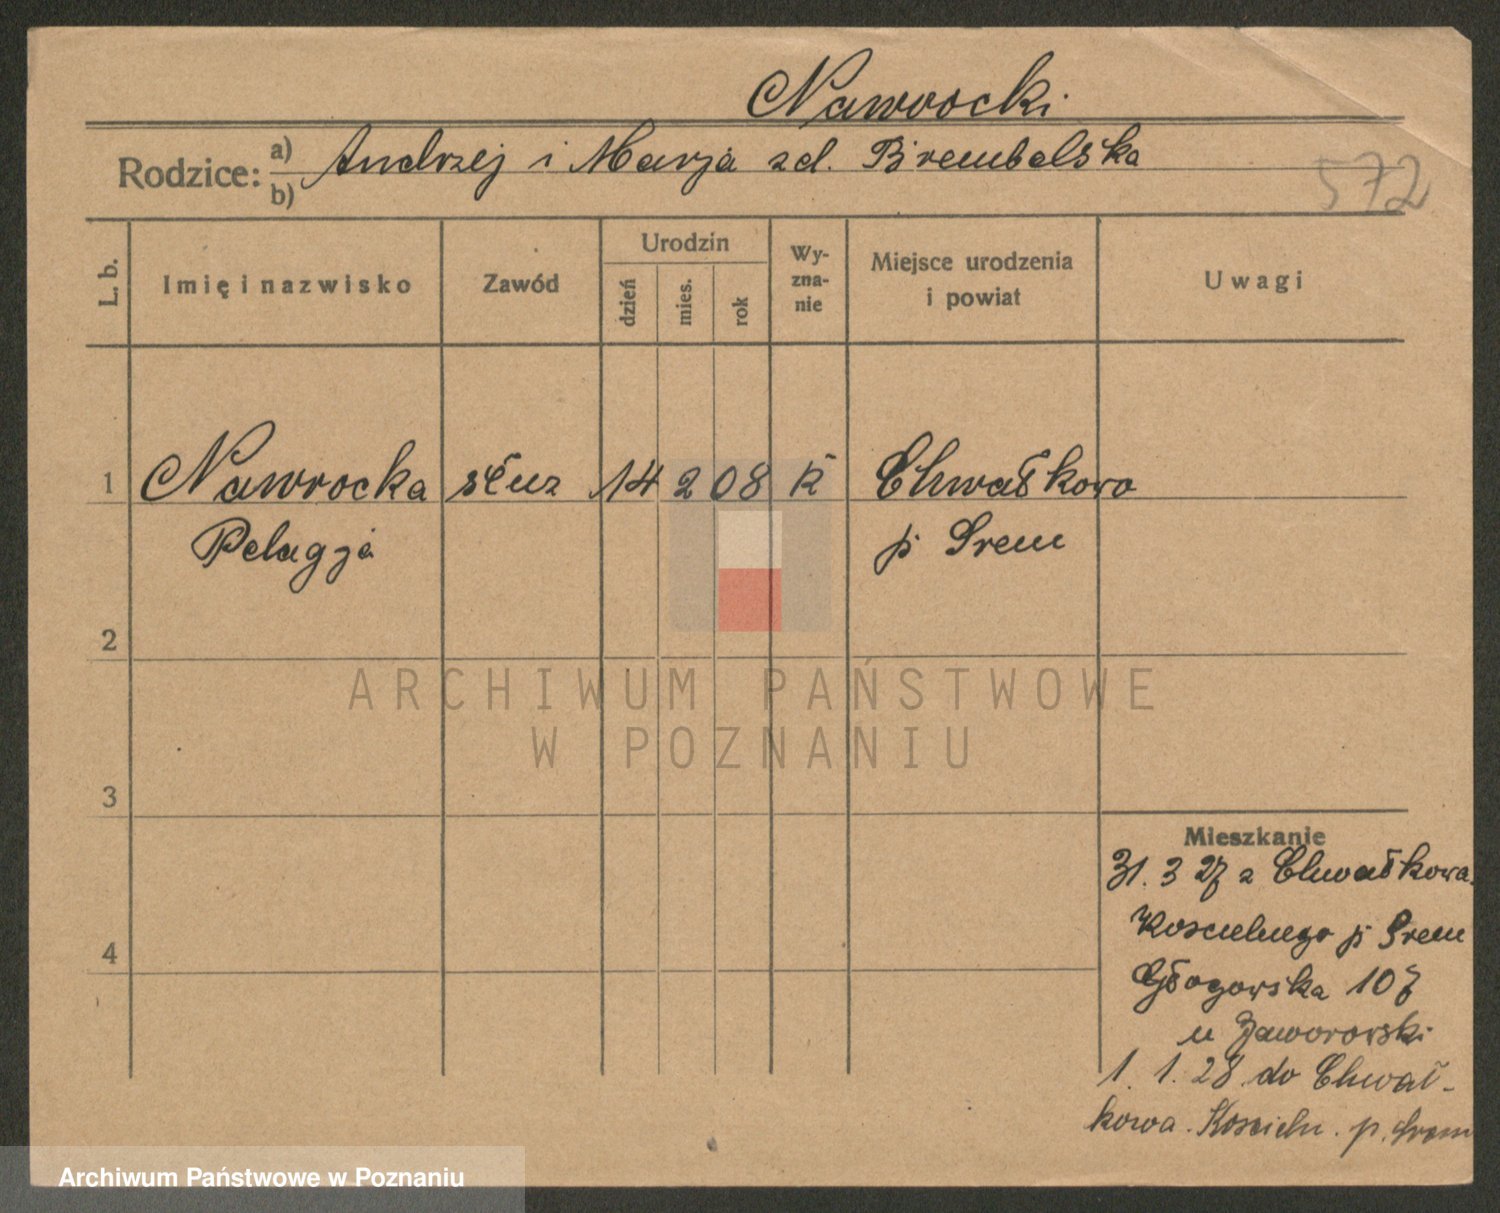 Nawrocki
Rodzice: a) b) Andrzej i Marja zd. Brembelska
572
L. b. Imię i nazwisko Zawód Urodzin dzień mies. rok Wy-zna-nie Miejsce urodzenia i powiat Uwagi
1 Nawrocka służ 14 2 08 K Chwałkowo
Pelagja p Srem
2
ARCHIWUM PAŃSTWOWE
W POZNANIU
3
Mieszkanie
31. 3 27 z Chwałkowa
Koscielnego p Srem
4
Głogowska 107
u Jaworowski
1. 1. 28 do Chwał-
kowa. Kościeln. p. Srem
Archiwum Państwowe w Poznaniu